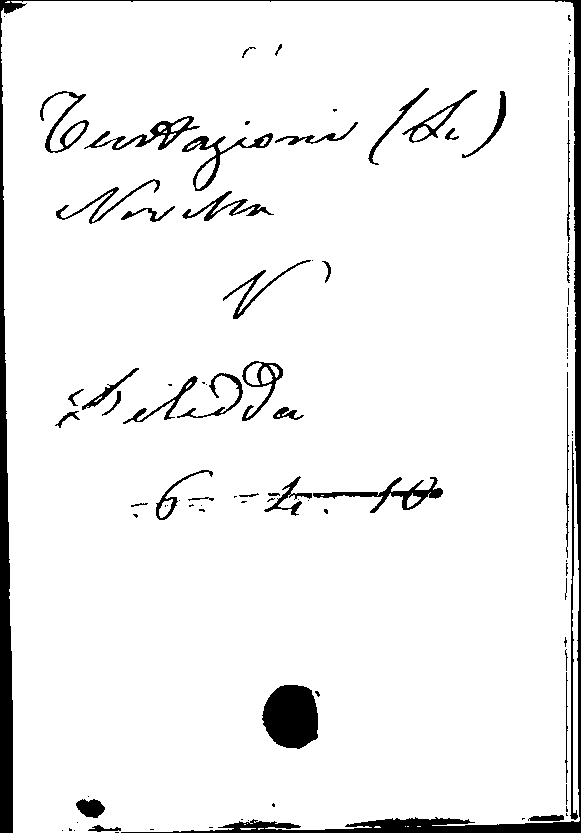 Tentazioni (Le)
Novelle
V
Deledda
6 L. 10